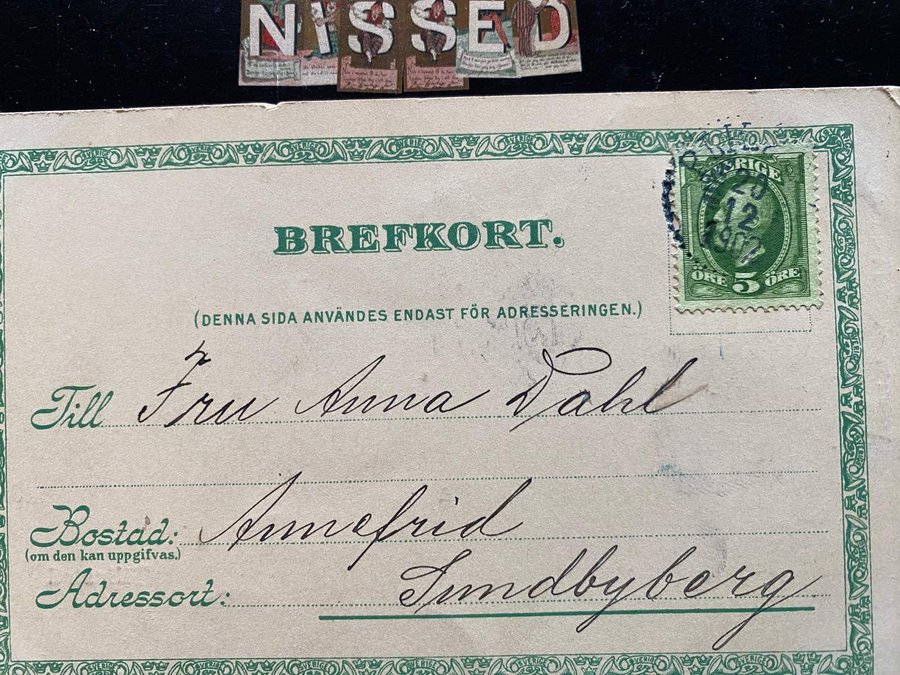 NISSED
BREFKORT.
SVERIGE
20
12
1902
ÖRE 5 ÖRE
(DENNA SIDA ANVÄNDES ENDAST FÖR ADRESSERINGEN.)
Till Fru Anna Dahl
Bostad: Annefrid
(om den kan uppgifvas.)
Adressort: Sundbyberg